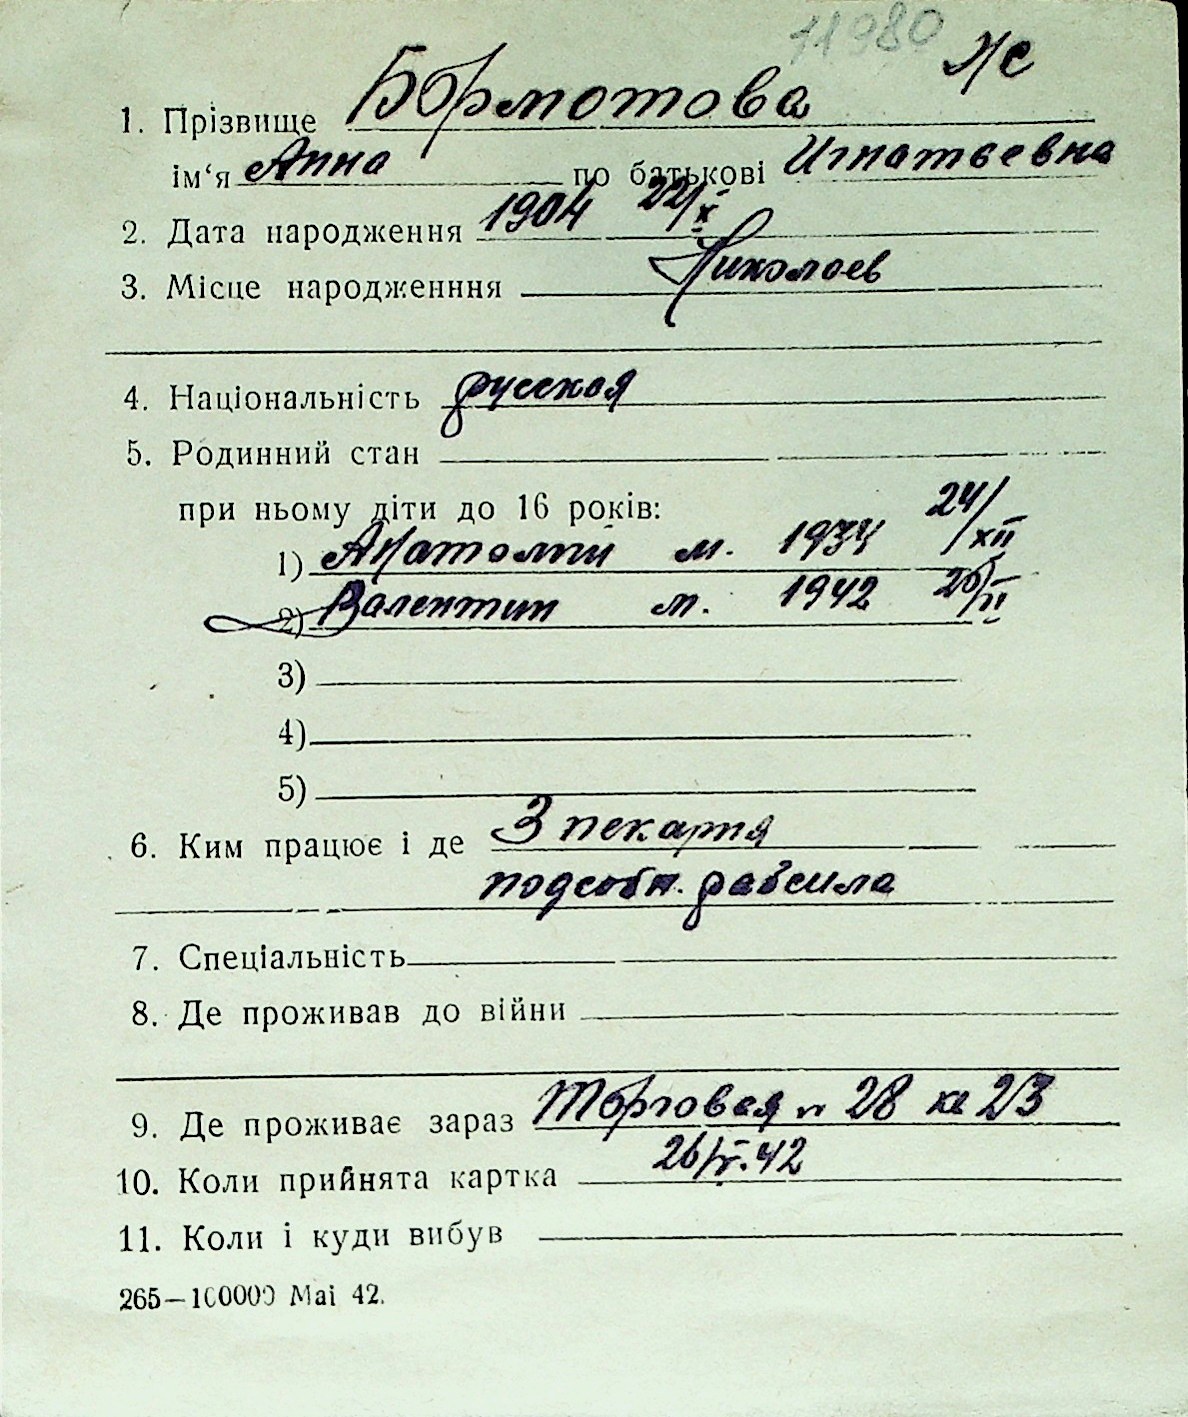 11980 Ж
1. Прізвище Бормотова
ім‘я Анна по батькові Игнатьевна
2. Дата народження 1904 22/X
3. Місце народженння Николаев
4. Національність русская
5. Родинний стан
при ньому діти до 16 років:
1) Анатолий м. 1934 24/XII
2) Валентин м. 1942 /II
3)
4)
5)
6. Ким працює і де 3 пекарня
подсобн. рабсила
7. Спеціальність
8. Де проживав до війни
9. Де проживає зараз Торговая 28 кв 23
10. Коли прийнята картка 42
11. Коли і куди вибув
265—100000 Маі 42.